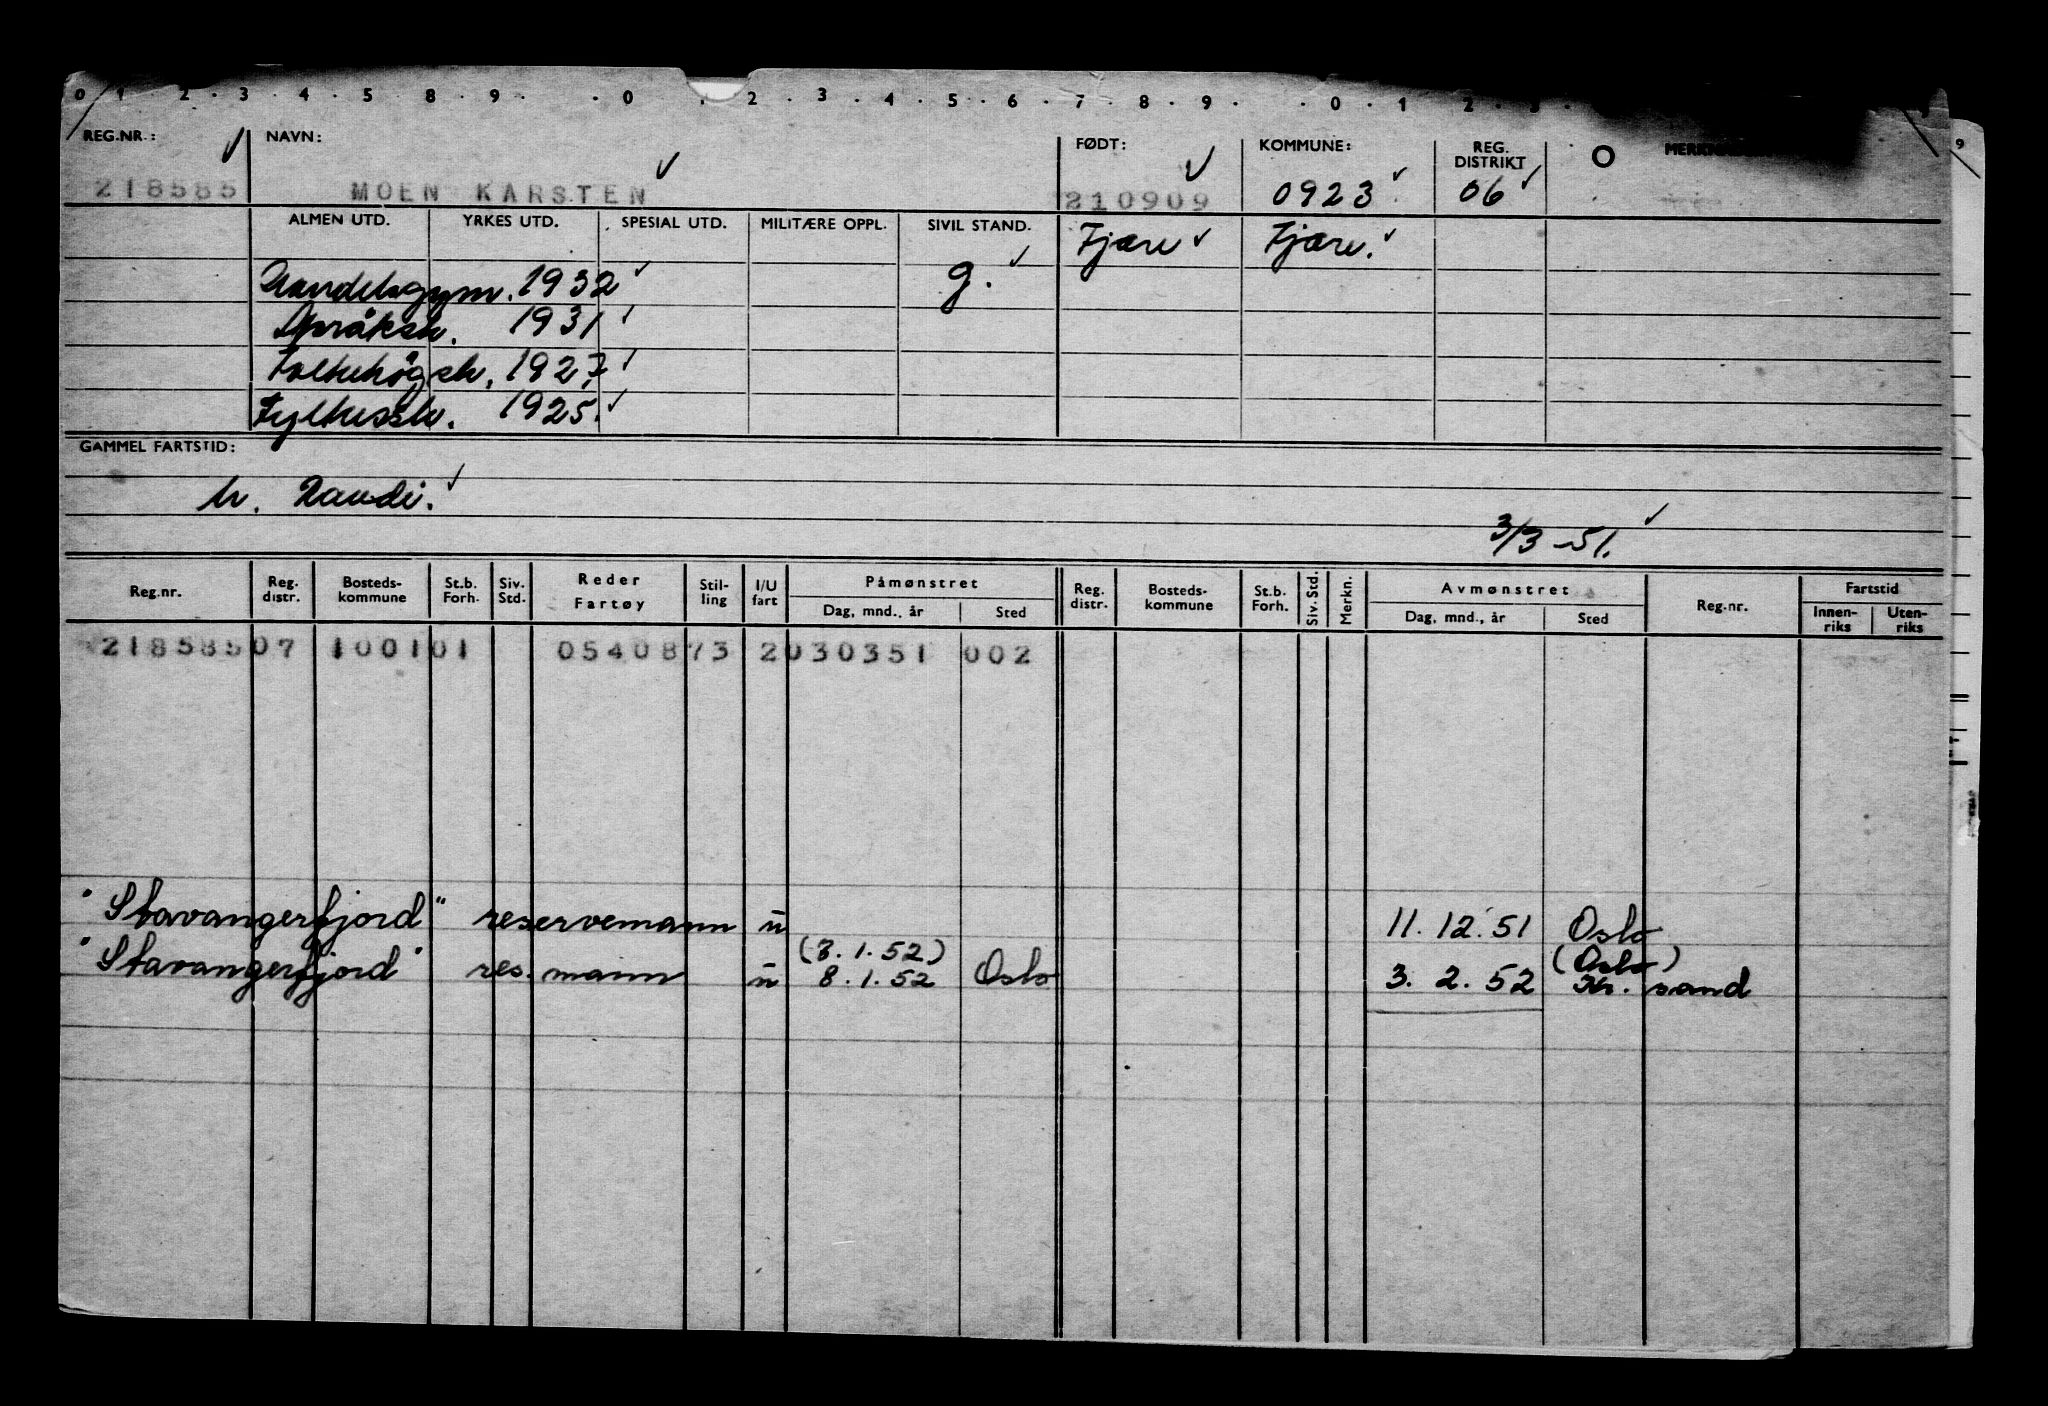 0 1 . 2 . 3 . 4 . 5 . 8 . 9 . . 0 . 2 . 3 . 4 . 5 . 6 . 7 . 8 . 9 . . 0 . 1 . 2 . 3 .
REG.NR.: NAVN: FØDT: KOMMUNE: REG. DISTRIKT O
218585 MOEN KARSTEN 210909 0923 06
ALMEN UTD. YRKES UTD. SPESIAL UTD. MILITÆRE OPPL. SIVIL STAND. Fjære Fjære.
Handelsgym. 1932 g.
Språksk. 1931
Folkehøgsk. 1927
Fylkessk. 1925.
GAMMEL FARTSTID:
3/3-51.
Reg.nr. Reg. distr. Bosteds- kommune St.b. Forh. Siv. Std. Reder Fartøy Stil- ling I/U fart Påmønstret Reg. distr. Bosteds- kommune St.b. Forh. Siv. Std. Merkn. Avmønstret Reg.nr. Fartstid
Dag, mnd., år Sted Dag, mnd., år Sted Innen- riks Uten- riks
218585 07 1001 01 0540873 2 030351 002
"Stavangerfjord" reservemann u 11.12.51 Oslo
(8.1.52) (Oslo)
"Stavangerfjord" res. mann u 8.1.52 Oslo 3.2.52 Kr. sand